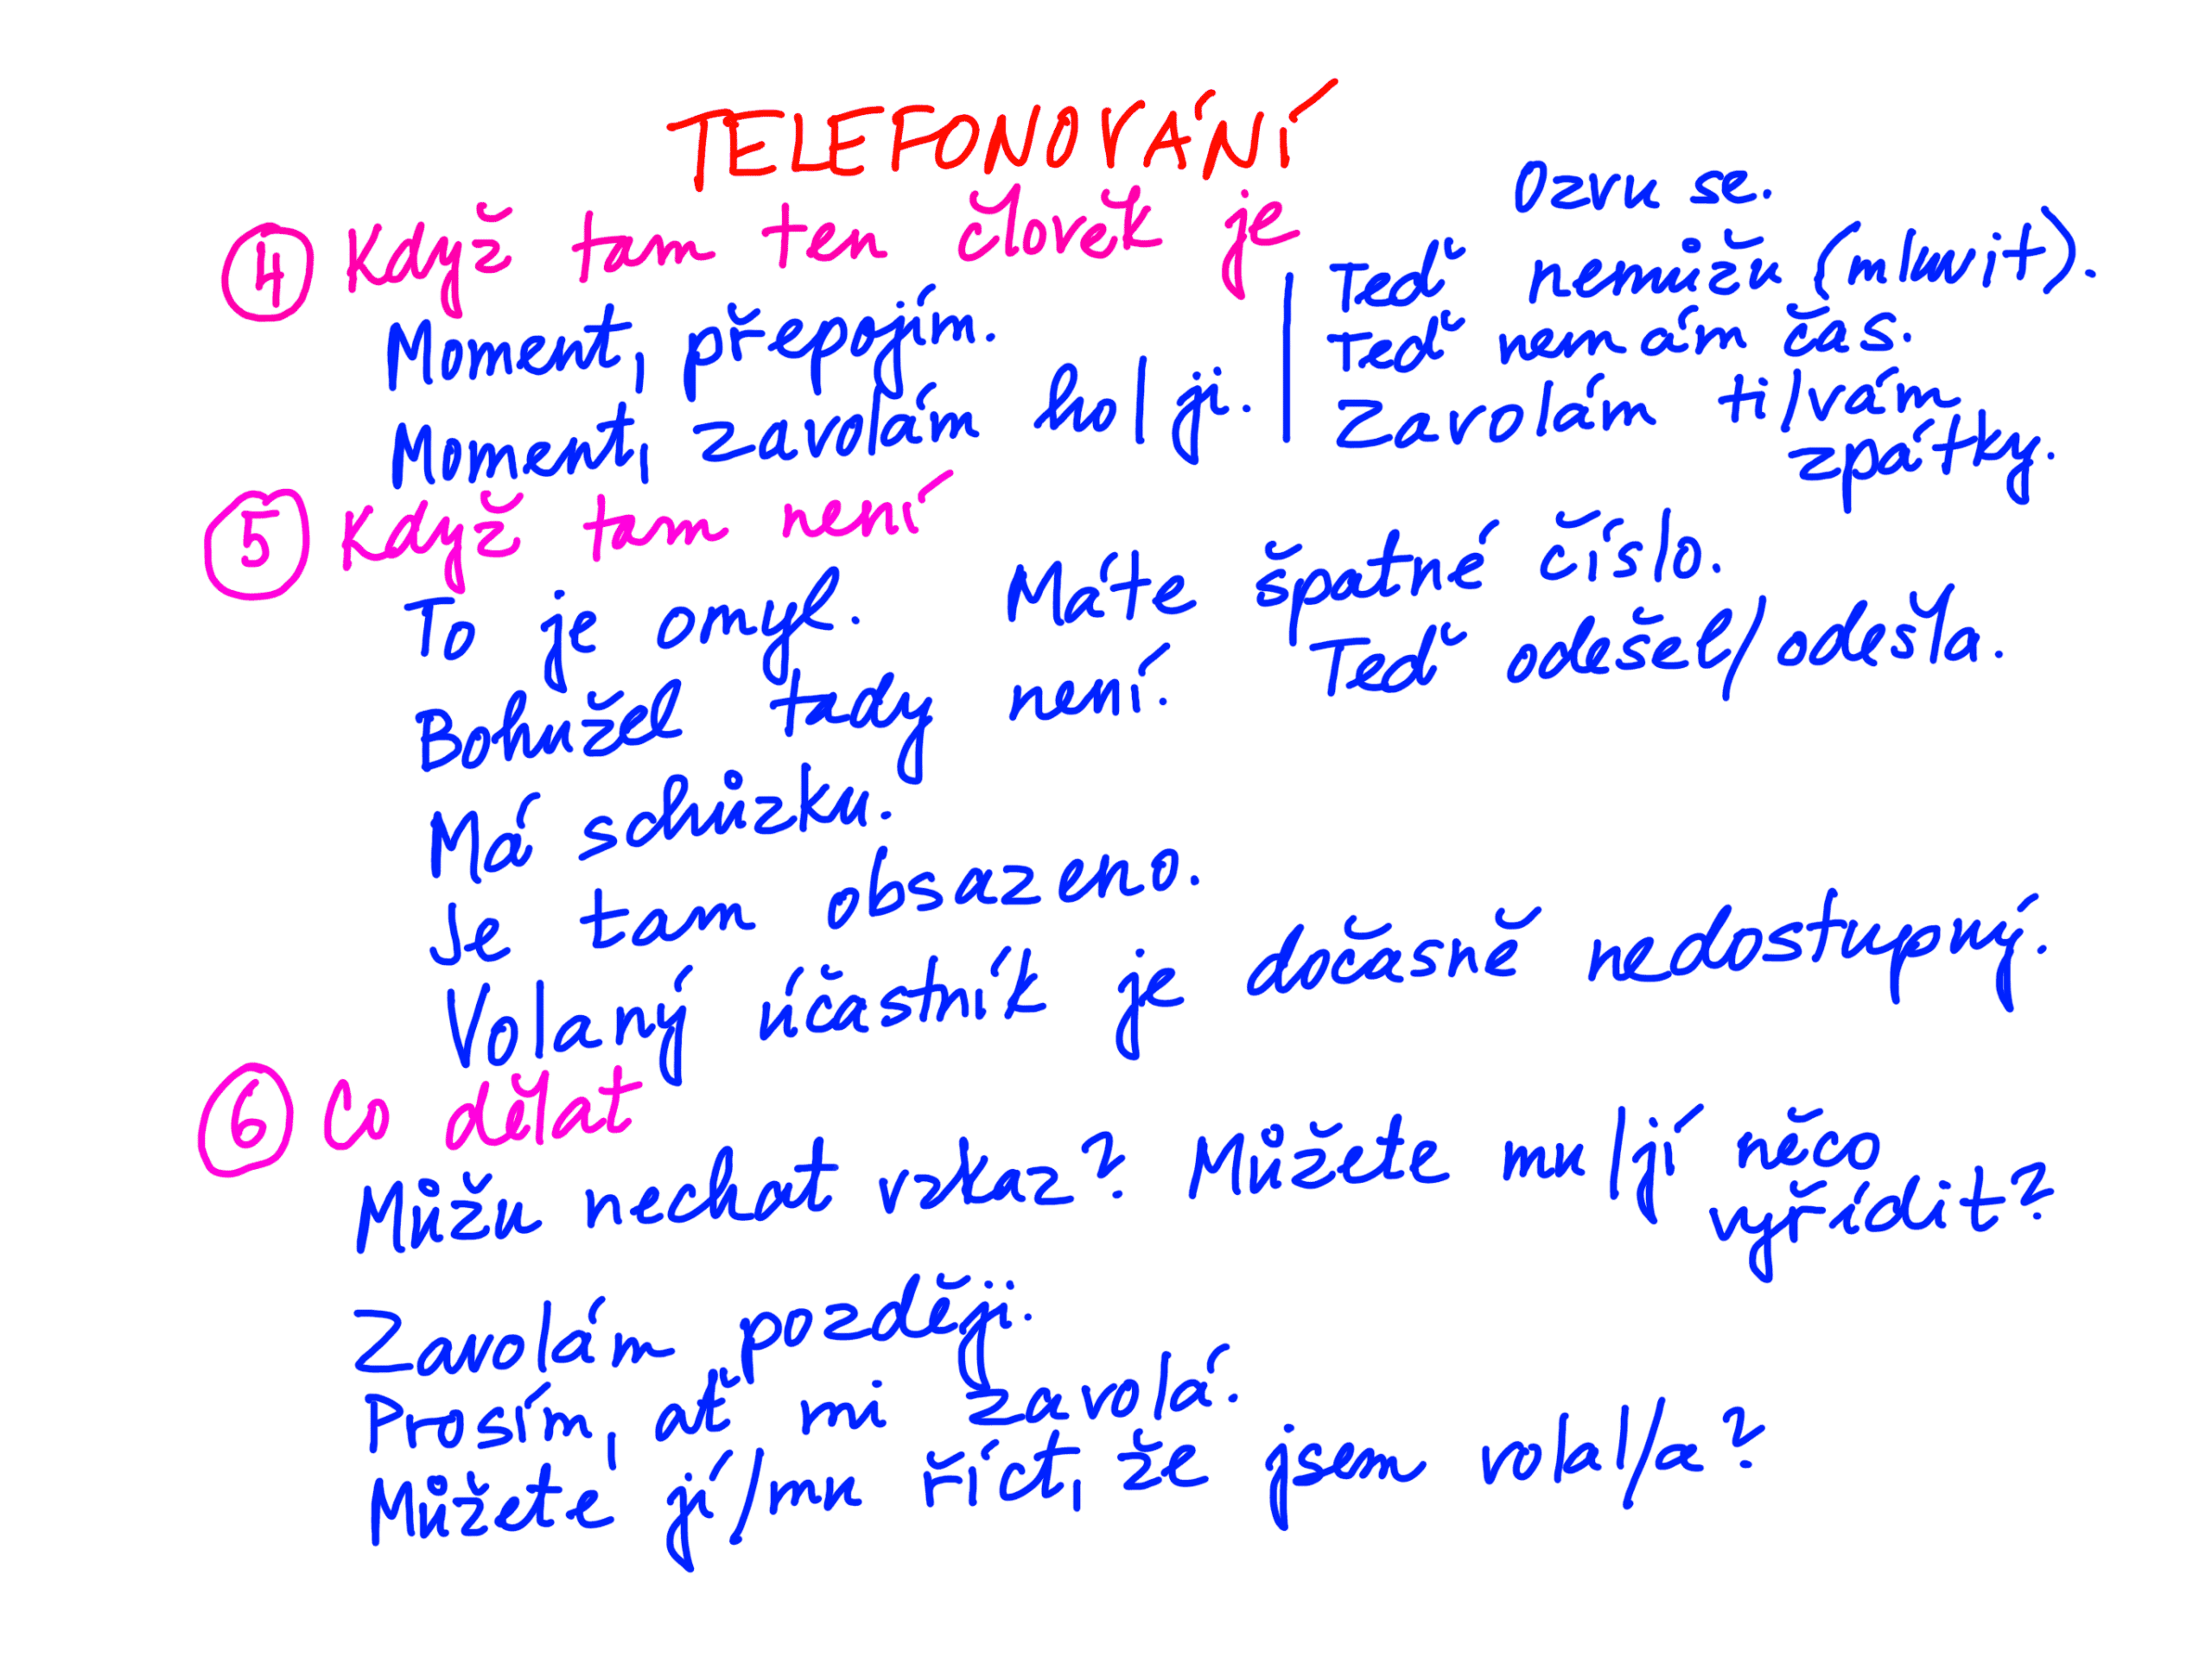 TELEFONOVÁNÍ
④ Když tam ten člověk je
Moment, přepojím.
Moment, zavolám ho | ji.
Ozvu se.
Teď nemůžu (mluvit).
Teď nemám čas.
Zavolám ti/vám
zpátky.
⑤ Když tam není
To je omyl. Máte špatné číslo.
Bohužel tady není. Teď odešel/odešla.
Má schůzku.
Je tam obsazeno.
Volaný účastník je dočasně nedostupný.
⑥ Co dělat
Můžu nechat vzkaz? Můžete mu | jí něco
vyřídit?
Zavolám později.
Prosím, ať mi zavolá.
Můžete jí/mu říct, že jsem volal/a?